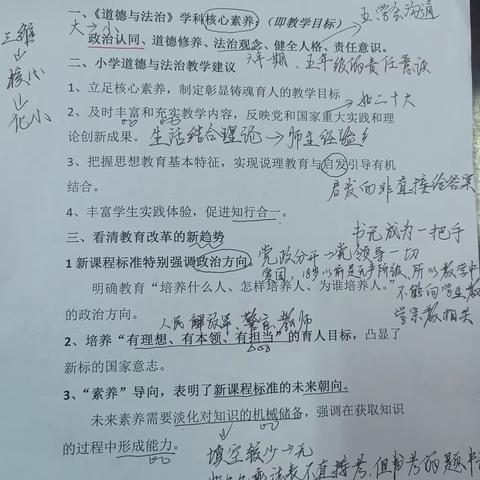 一、《道德与法治》学科核心素养:(即教学目标)
五、学会沟通
大→小
政治认同、道德修养、法治观念、健全人格、责任意识。
三维
核心
化小
二、小学道德与法治教学建议
五年级的责任意识
1、立足核心素养，制定彰显铸魂育人的教学目标
如二十大
2、及时丰富和充实教学内容，反映党和国家重大实践和理
论创新成果。
生活结合理论→师生经验
3、把握思想教育基本特征，实现说理教育与启发引导有机
结合。
启发而非直接给答案
4、丰富学生实践体验，促进知行合一。
书记成为一把手
三、看清教育改革的新趋势
党政分开→党领导一切
1 新课程标准特别强调政治方向。
所以教学中
明确教育“培养什么人、怎样培养人、为谁培养人。”
不能向学生教
的政治方向。
学宗教相关
人民解放军、警官、教师
2、培养“有理想、有本领、有担当”的育人目标，凸显了
新标的国家意志。
3、“素养”导向，表明了新课程标准的未来朝向。
未来素养需要淡化对知识的机械储备，强调在获取知识
的过程中形成能力。
填空较少→无
不直接考，但当考的题中